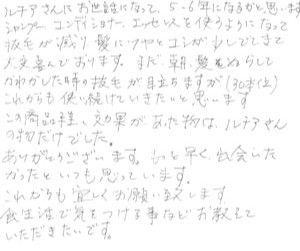 ルチアさんにお世話になって、5-6年になるかと思います
シャンプー、コンディショナー、エッセンスを使うようになって
抜毛が減り髪にツヤとコシが少しでてきて
大変喜んでおります。まだ、朝、髪をぬらして
かわかした時の抜毛が目立ちますが(30本位)
これからも使い続けていきたいと思います
この商品程、効果があった物は、ルチアさん
の物だけでした。
ありがとうございます。もっと早く、出会いた
かったといつも思っています。
これからも宜しくお願い致します
食生活で気をつける事などお教えて
いただきたいです。